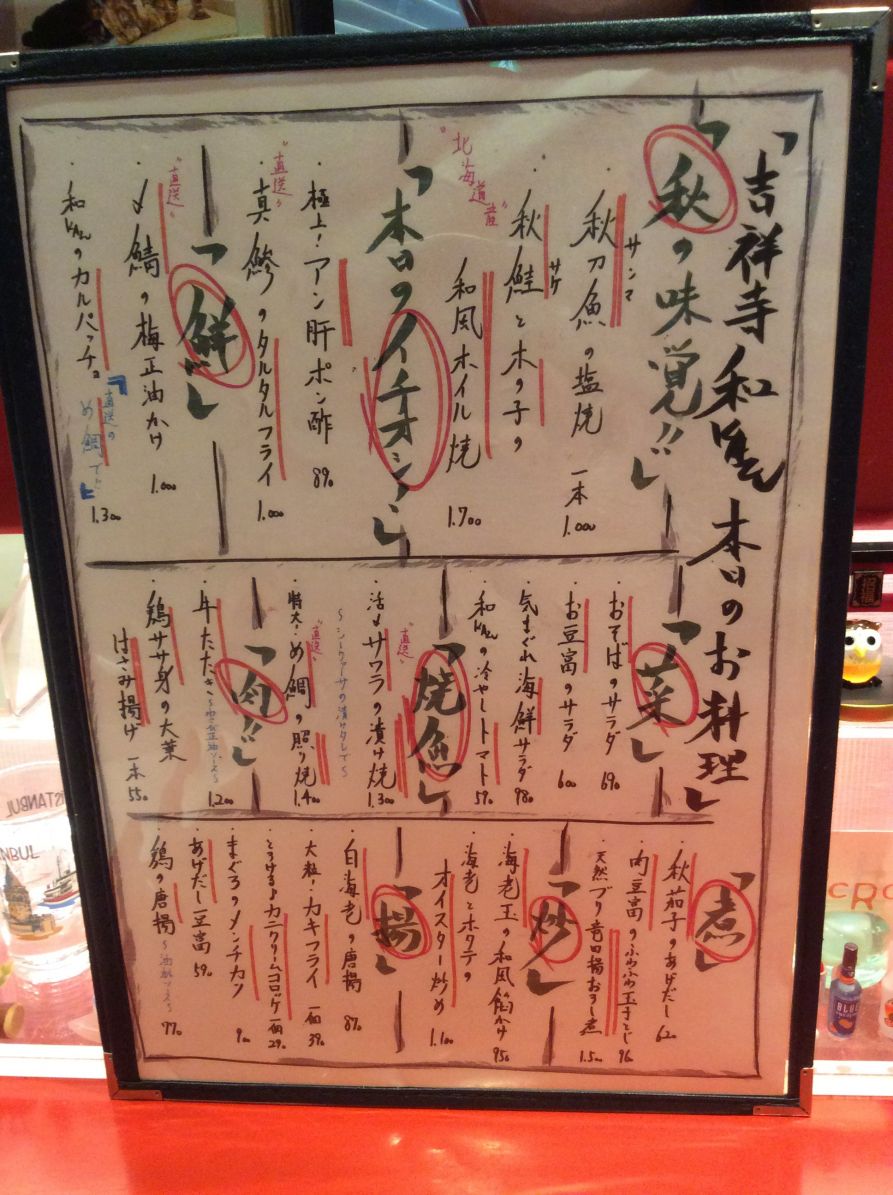 「吉祥寺 和 本日のお料理」
「秋の味覚!!」
サンマ
・秋刀魚の塩焼 一本 1.000
サケ
・秋鮭と木の子の
和風ホイル焼 1.700
"北海道産"
「本日のイチオシ」
・極上!アン肝ポン酢 890
"直送"
・真鯵のタルタルフライ 1.000
「鮮!!」
"直送"
・〆鯖の梅正油かけ 1.000
・和のカルパッチョ 1.300
「直送のめ鯛です」
「菜」
・おそばのサラダ 690
・お豆富のサラダ 600
・気まぐれ海鮮サラダ 980
・和の冷やしトマト 590
「焼魚」
"直送"
・活〆サワラの漬け焼 1.300
〜シークァーサの漬けタレで〜
"直送"
・特大・め鯛の照り焼 1.400
「肉!!」
・牛たたき 1.200
・鶏ササ身の大葉
はさみ揚げ 一本 550
「煮」
・秋茄子のあげだし 620
・肉豆富のふわふわ玉子とじ 960
・天然ブリ竜田揚おろし煮 1.500
「炒」
・海老玉の和風餡かけ 950
・海老とホタテの
オイスター炒め 1.100
「揚」
・白海老の唐揚 870
・大粒!カキフライ 一個 390
・とろける♪カニクリームコロッケ 一個 290
・まぐろのメンチカツ 900
・あげだし豆富 590
・鶏の唐揚 970
ISTANBUL
NBUL
CRO
BLUE